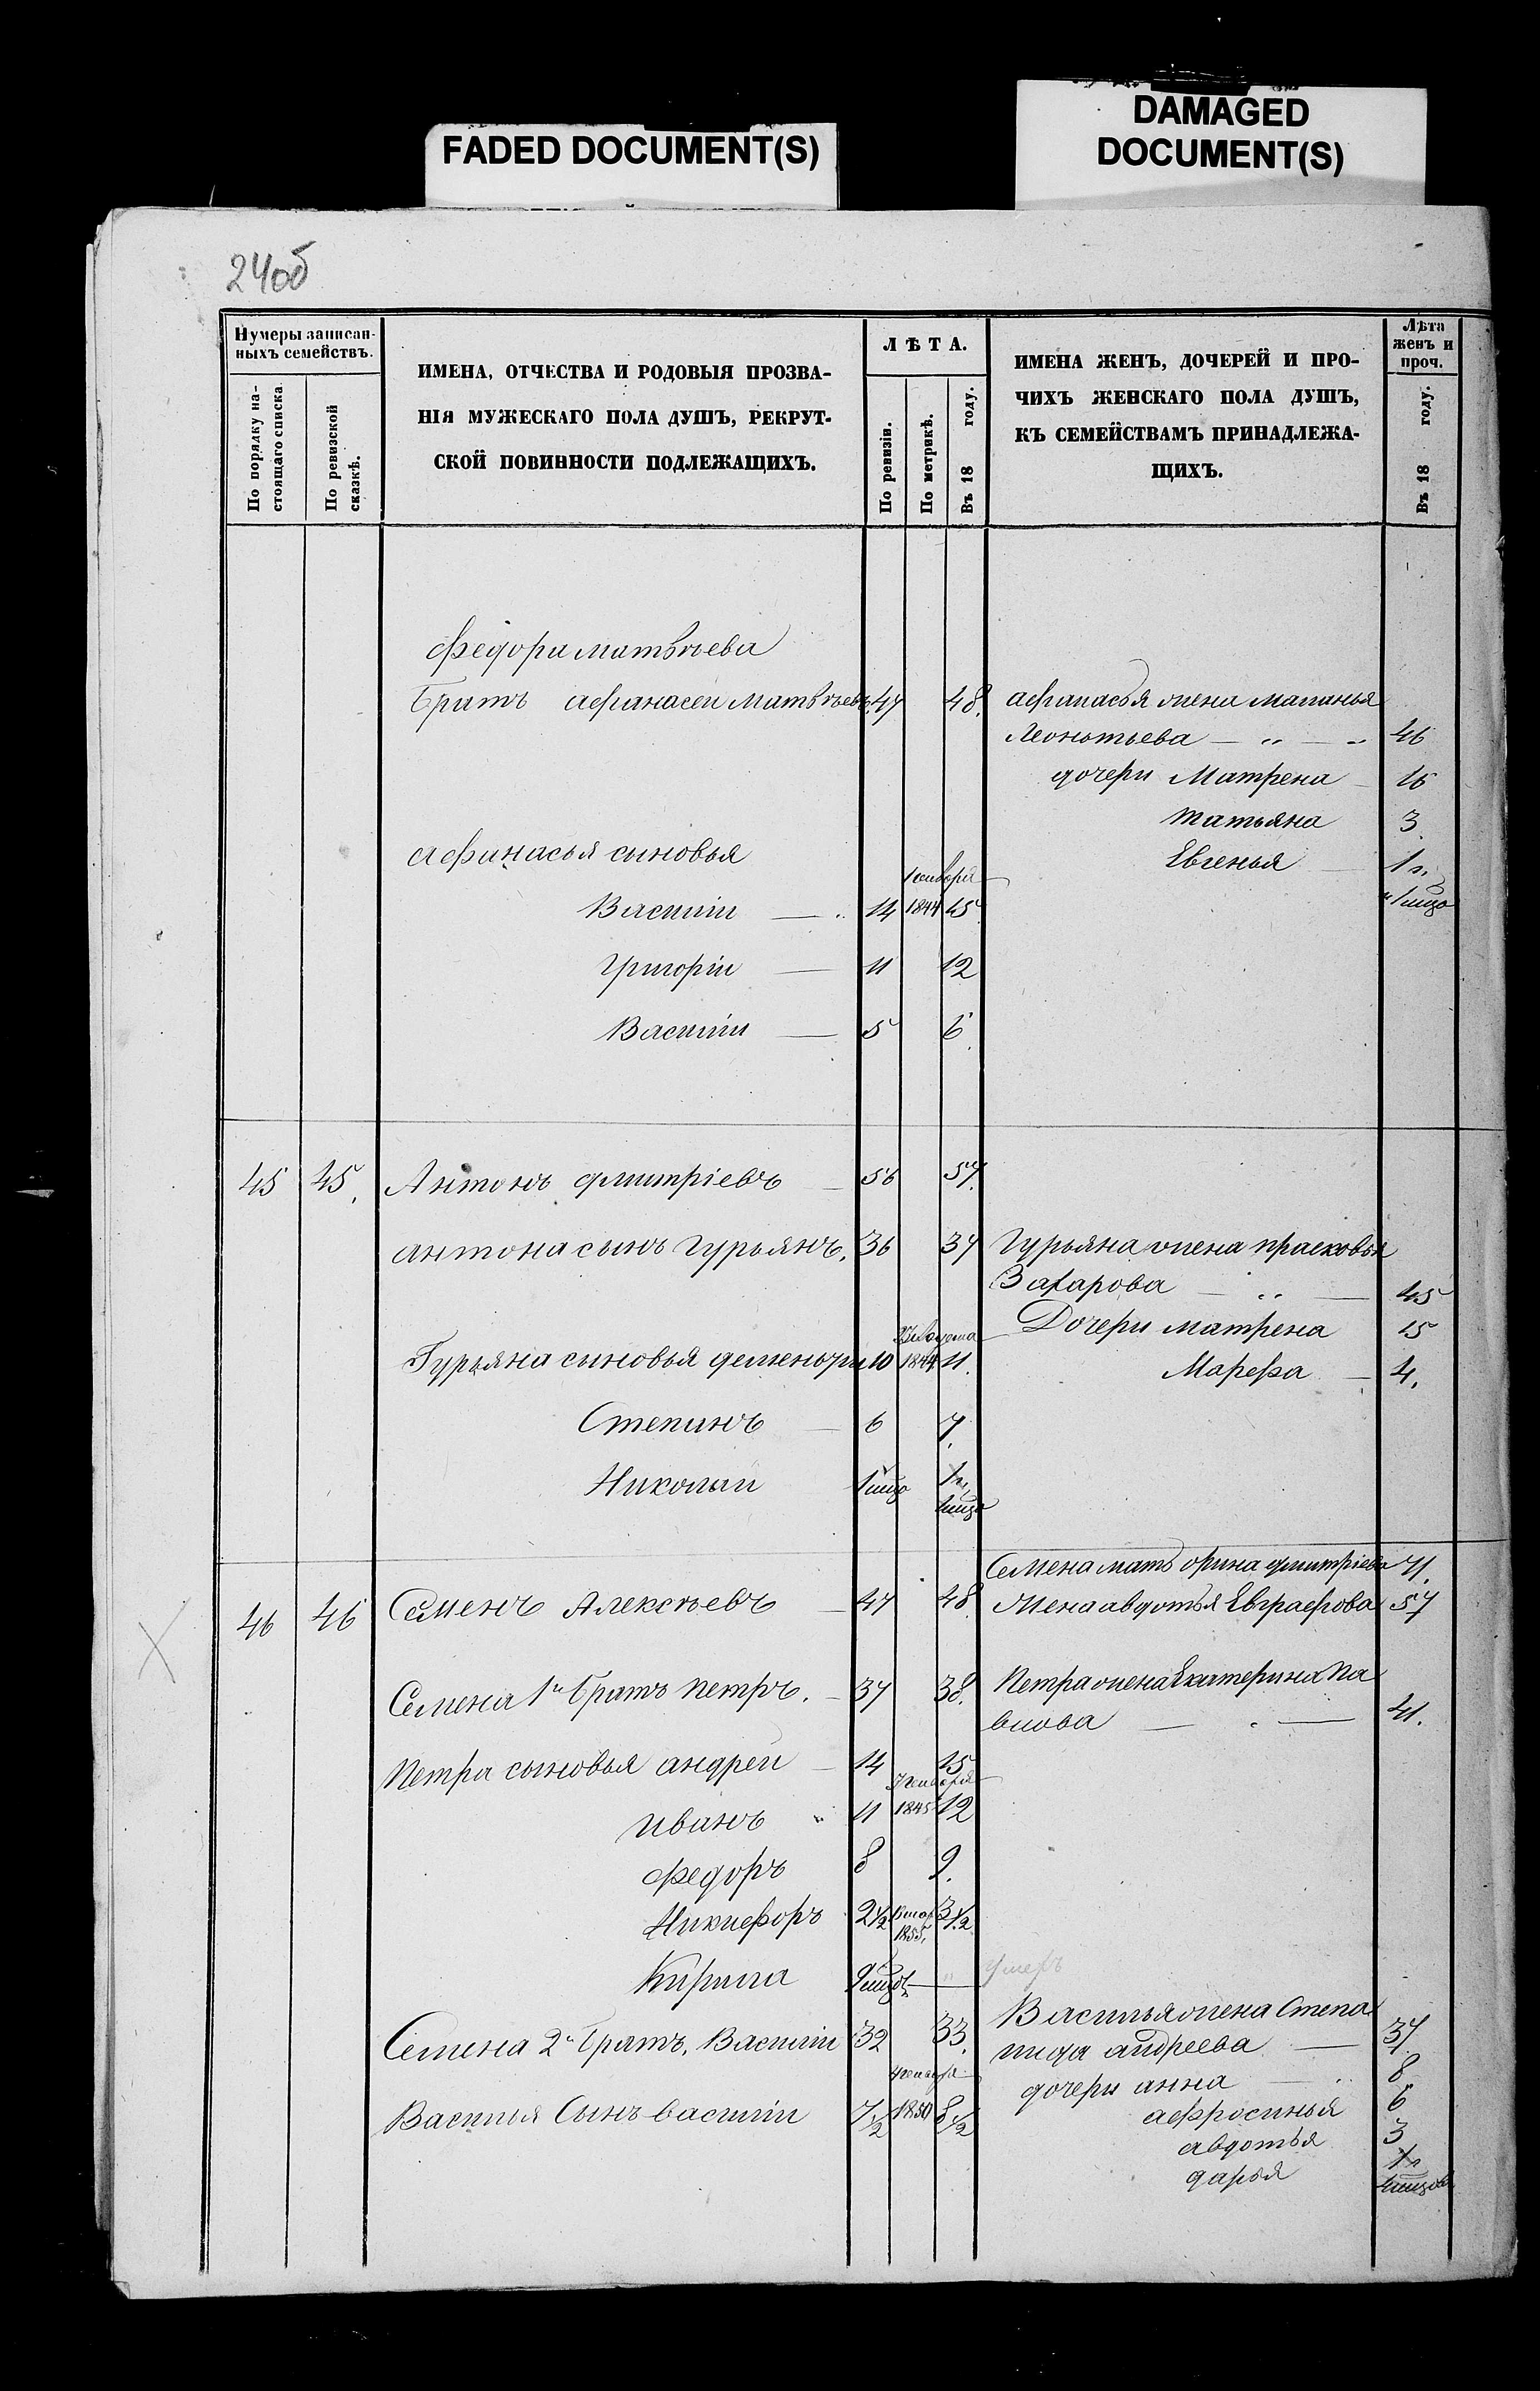 FADED DOCUMENT(S)
DAMAGED
DOCUMENT(S)
24об
Нумеры записан-
ныхъ семействъ.
По порядку на-
стоящаго списка
По ревизской
сказкѣ.
ИМЕНА, ОТЧЕСТВА И РОДОВЫЯ ПРОЗВА-
НІЯ МУЖЕСКАГО ПОЛА ДУШЪ, РЕКРУТ-
СКОЙ ПОВИННОСТИ ПОДЛЕЖАЩИХЪ.
ЛѢТА.
По ревизіи.
По метрикѣ.
Въ 18 году.
ИМЕНА ЖЕНЪ, ДОЧЕРЕЙ И ПРО-
ЧИХЪ ЖЕНСКАГО ПОЛА ДУШЪ,
КЪ СЕМЕЙСТВАМЪ ПРИНАДЛЕЖА-
ЩИХЪ.
Лѣта
женъ и
проч.
Въ 18 году.
Федора матвѣева
Братъ афанасей матвѣевъ 47 48. афанасья жена маланья
Леонтьева — " — " 46
дочери Матрена 16
татьяна 3
афанасья сыновья Евгенья 1 г.
Василій — 14 1844 15
Григорій — 11 12
Василій — 5 6
45 45. Антонъ дмитріевъ 56 57.
антона сынъ гурьянъ. 36 37 Гурьяна жена прасковья
Захарова — " — 45
Дочери матрена 15
Гурьяна сыновья 10 1844 11. Марефа — 4.
Степанъ — 6 7.
Николай
Семена мать орина дмитріева 71.
46 46 Семенъ Алексѣевъ 47 48 Жена авдотья Евграфова 57
Семена 1й братъ петръ. 37 38. Петра жена Екатерина Па
влова — 41.
Петра сыновья андрей 14 15
иванъ " 11 1845 12
федоръ 8 9.
Никифоръ 2½ 1855. 3½
Кирила умеръ
Василья жена Степа
Семена 2й братъ. Василій 32 33. нида андреева — 37
дочери анна 8
Василья Сынъ василій 7½ 1850 8½ афросинья 6
авдотья 3
дарья